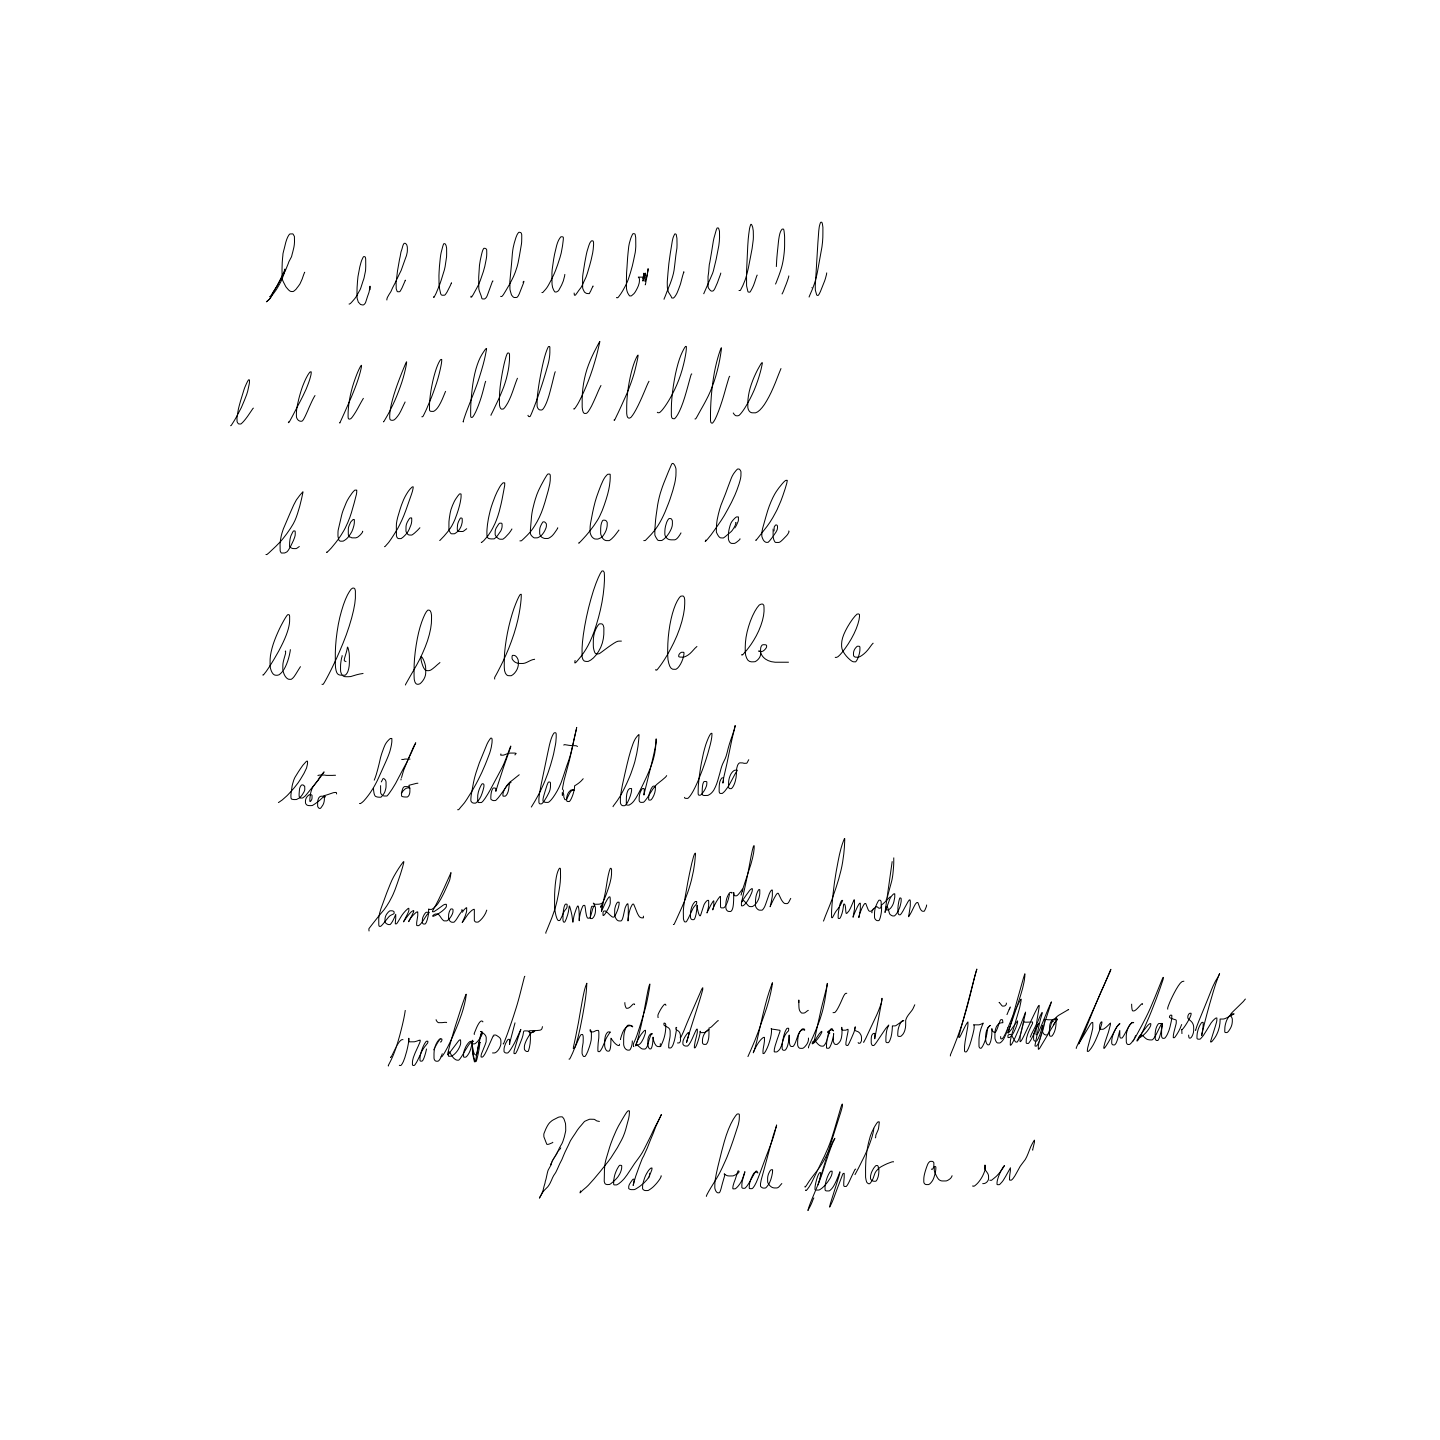 l l l l l l l l l l l l l l
l l l l l l l l l l l l l
le le le le le le le le le le
le le le le le le le le
leto leto leto leto leto leto
lamoken lamoken lamoken lamoken
hračkárstvo hračkárstvo hračkárstvo hračkárstvo
V lete bude teplo a